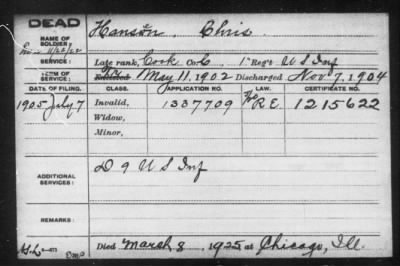 DEAD
NAME OF SOLDIER: Hanson, Chris.
SERVICE: Late rank, Cook Co. C, 1" Reg't U S Inf
TERM OF SERVICE: Enlisted May 11, 1902 Discharged Nov 7, 1904
DATE OF FILING. CLASS. APPLICATION NO. LAW. CERTIFICATE NO.
1905 July 7 Invalid, 1337709 R.E. 1215622
Widow,
Minor,
ADDITIONAL SERVICES: D 9 U S Inf
REMARKS:
Died March 8, 1925 at Chicago, Ill.